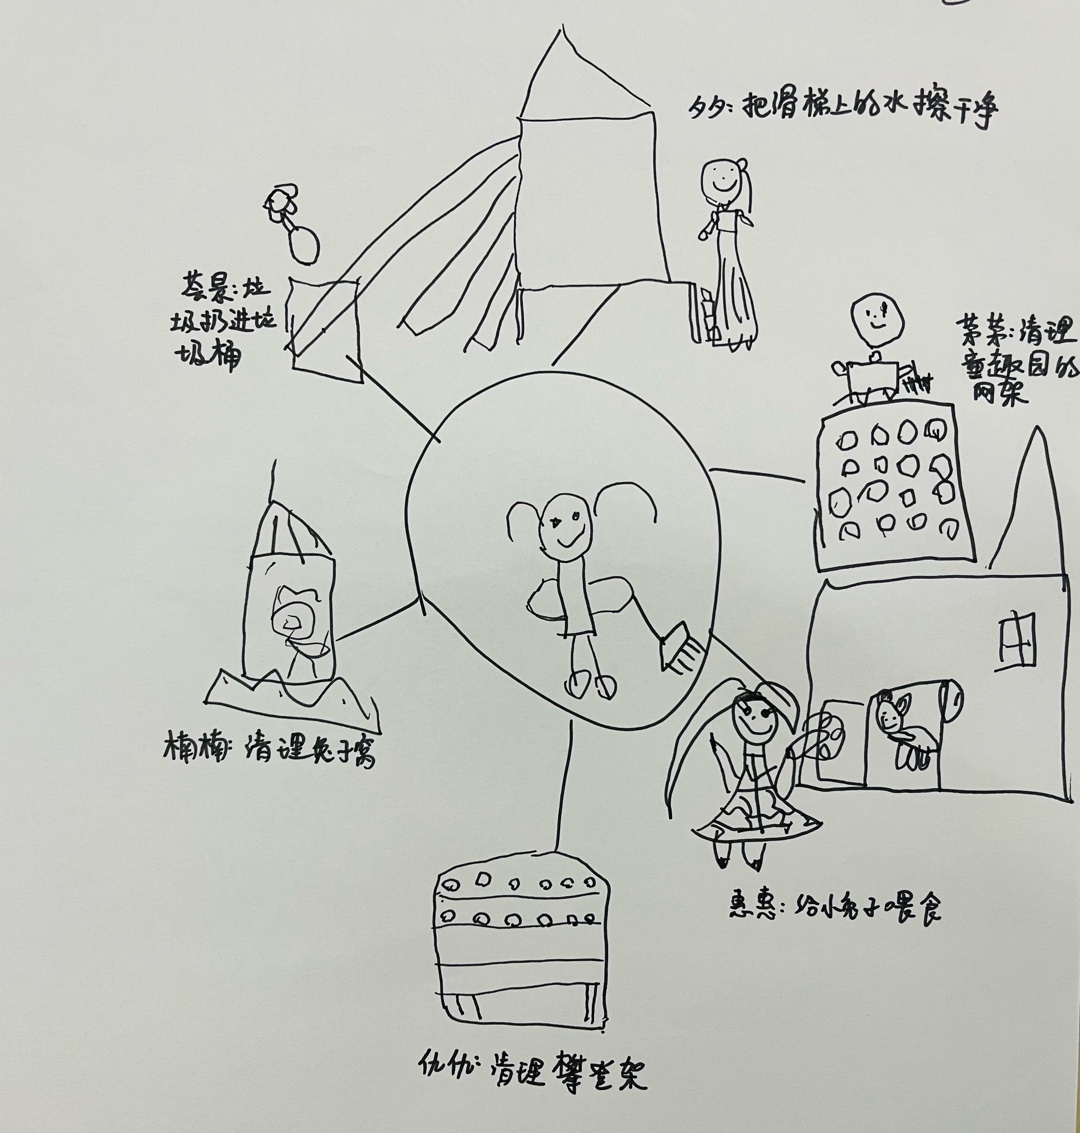 夕夕：把滑梯上的水擦干净
荟景：垃
圾扔进垃
圾桶
茅茅：清理
童趣园的
网架
楠楠：清理兔子窝
惠惠：给小兔子喂食
仇仇：清理攀登架